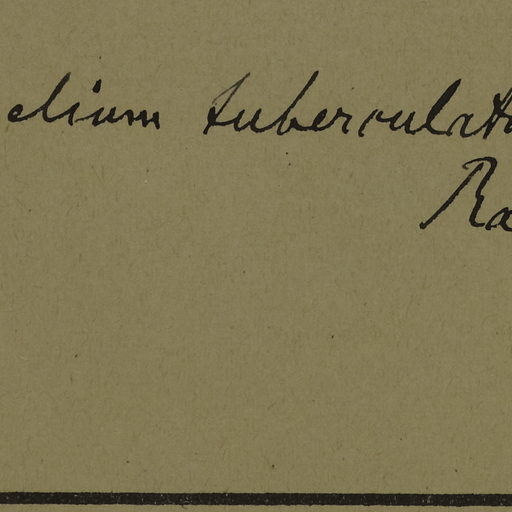 elium tuberculatu
Ra